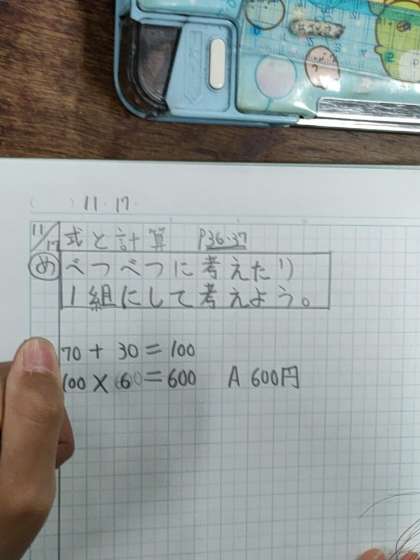 11. 17.
11/17 式と計算 P36・37
め べつべつに考えたり
1組にして考えよう。
70 + 30 = 100
100 × 6 = 600 A 600円